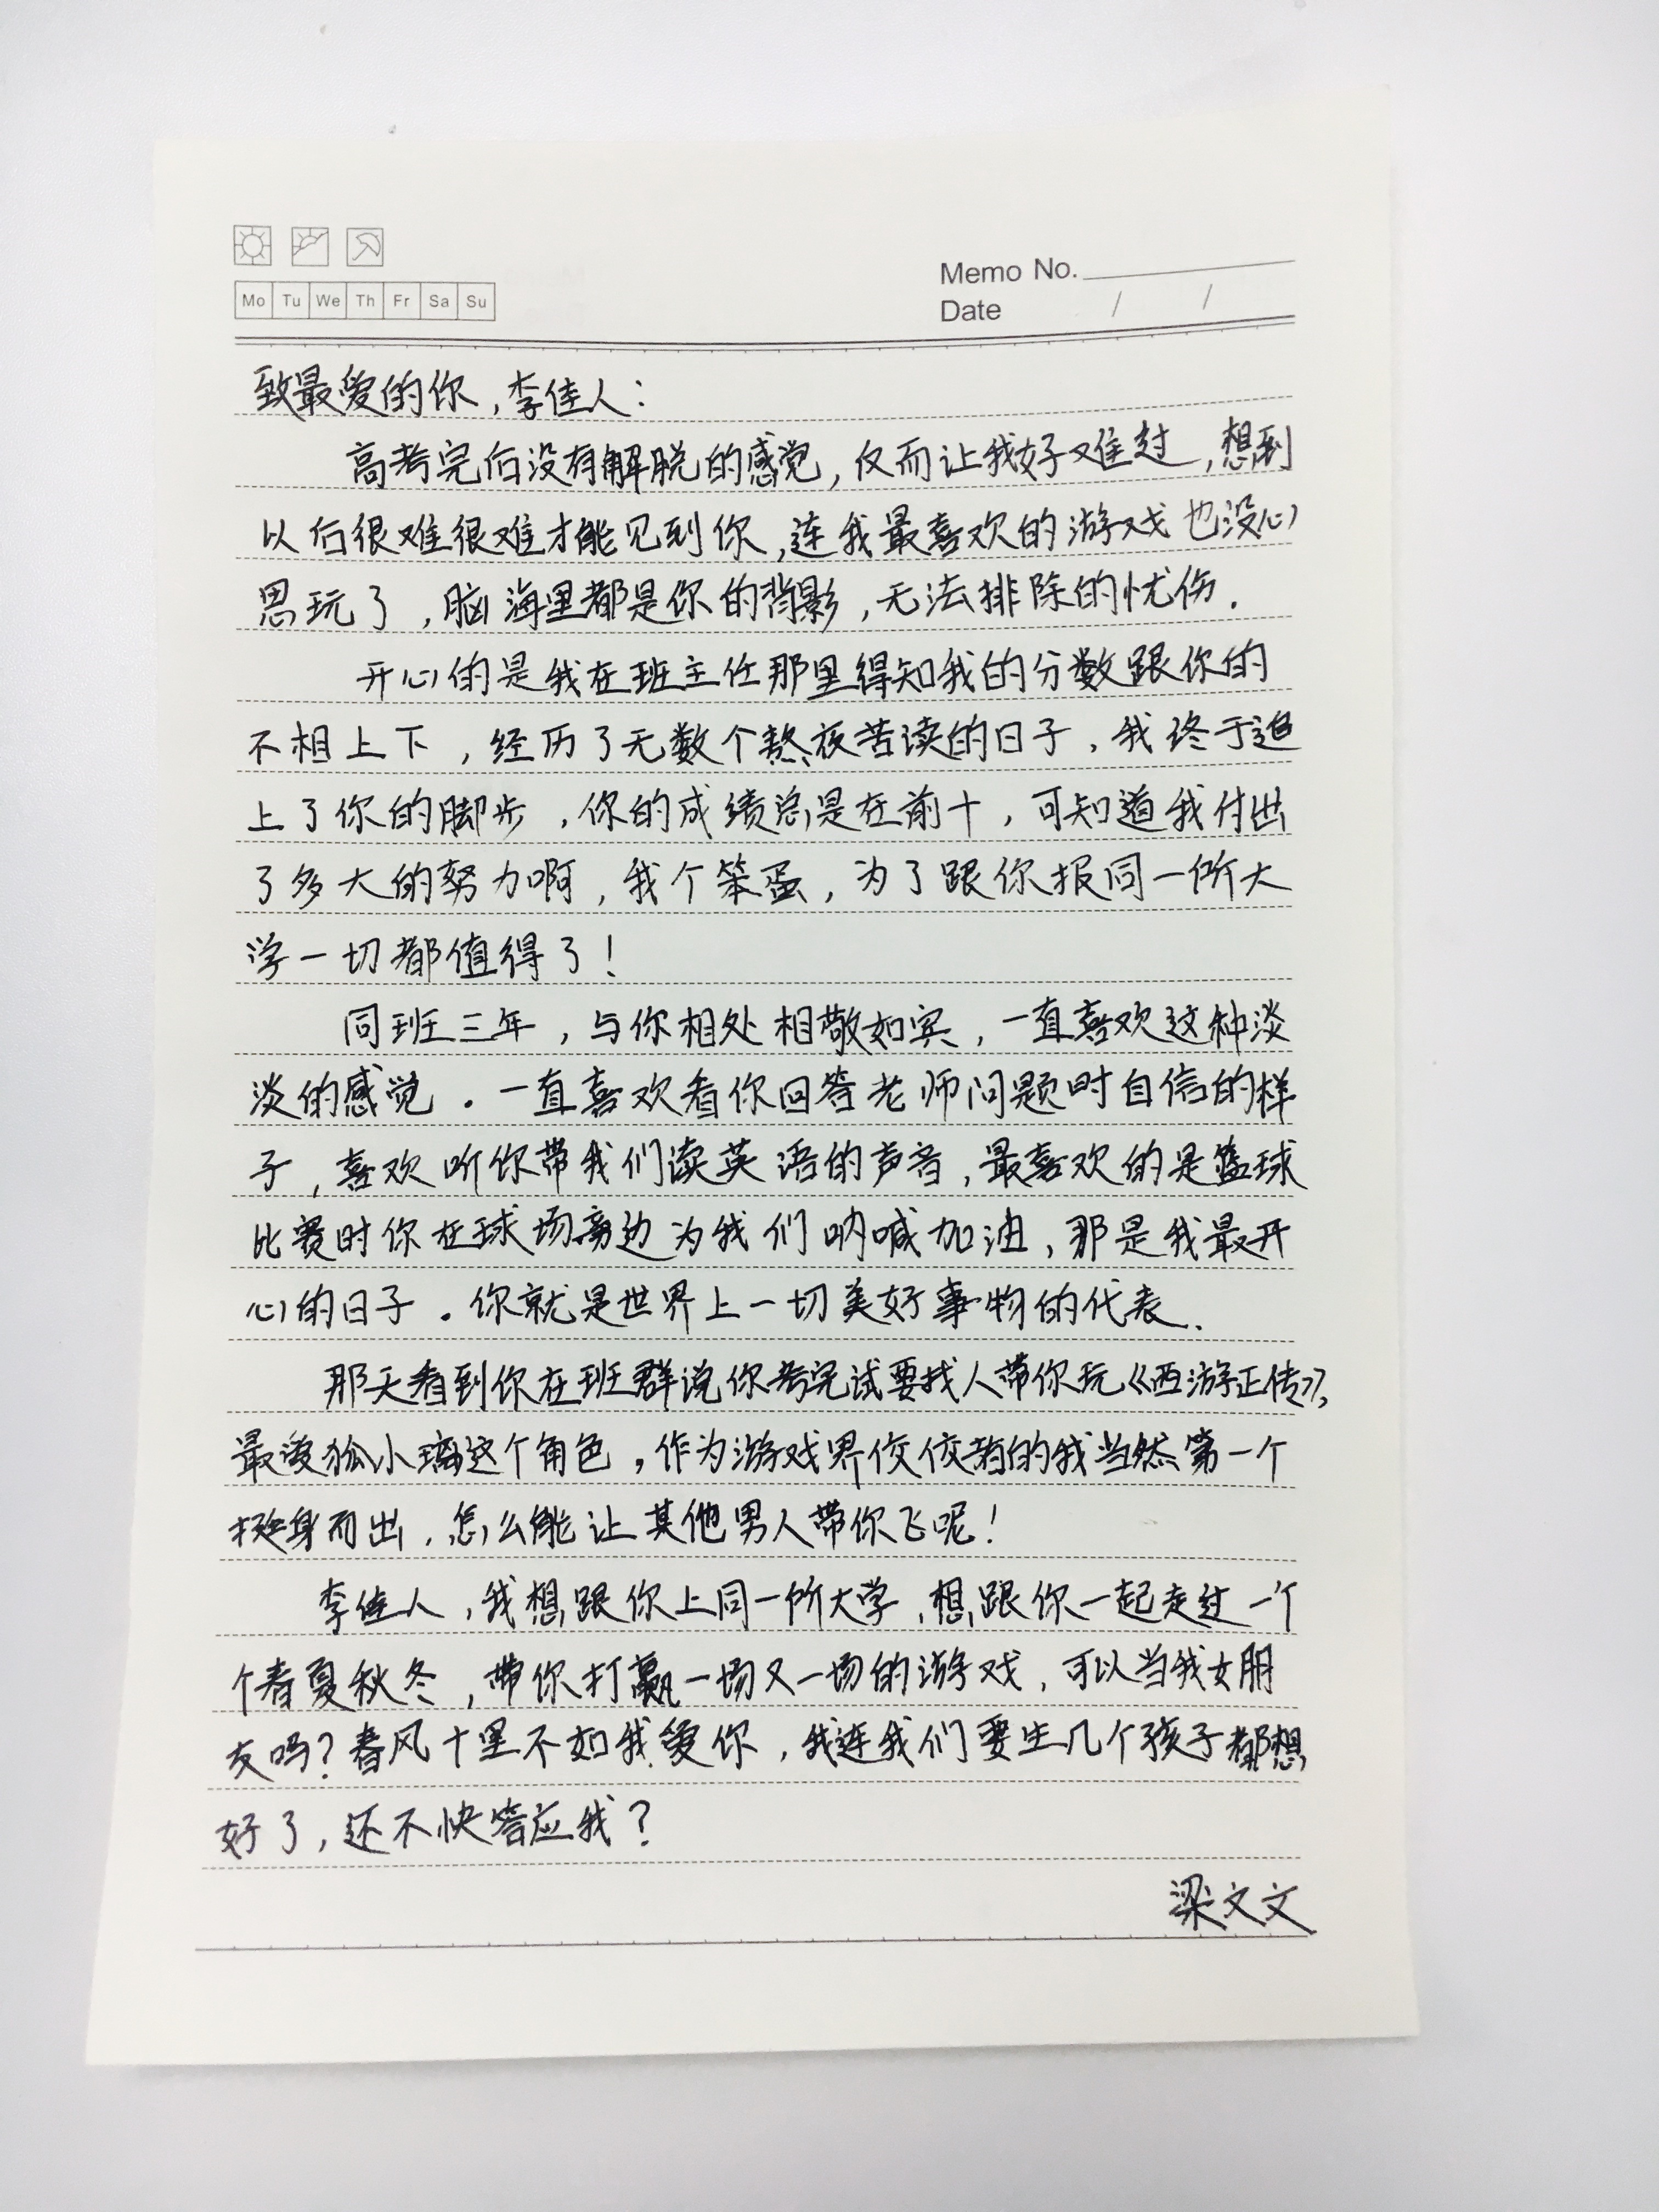 Memo No.
Mo Tu We Th Fr Sa Su
Date / /
致最爱的你,李佳人:
高考完后没有解脱的感觉,反而让我好难过,想到
以后很难很难才能见到你,连我最喜欢的游戏也没心
思玩了,脑海里都是你的背影,无法排除的忧伤.
开心的是我在班主任那里得知我的分数跟你的
不相上下,经历了无数个熬夜苦读的日子,我终于追
上了你的脚步,你的成绩总是在前十,可知道我付出
了多大的努力啊,我个笨蛋,为了跟你报同一所大
学一切都值得了!
同班三年,与你相处相敬如宾,一直喜欢这种淡
淡的感觉。一直喜欢看你回答老师问题时自信的样
子,喜欢听你带我们读英语的声音,最喜欢的是篮球
比赛时你在球场旁边为我们呐喊加油,那是我最开
心的日子。你就是世界上一切美好事物的代表.
那天看到你在班群说你考完试要找人带你玩《西游正传》,
最爱狐小璃这个角色,作为游戏界佼佼者的我当然第一个
挺身而出,怎么能让其他男人带你飞呢!
李佳人,我想跟你上同一所大学,想跟你一起走过一个
个春夏秋冬,带你打赢一场又一场的游戏,可以当我女朋
友吗?春风十里不如我爱你,我连我们要生几个孩子都想
好了,还不快答应我?
梁文文